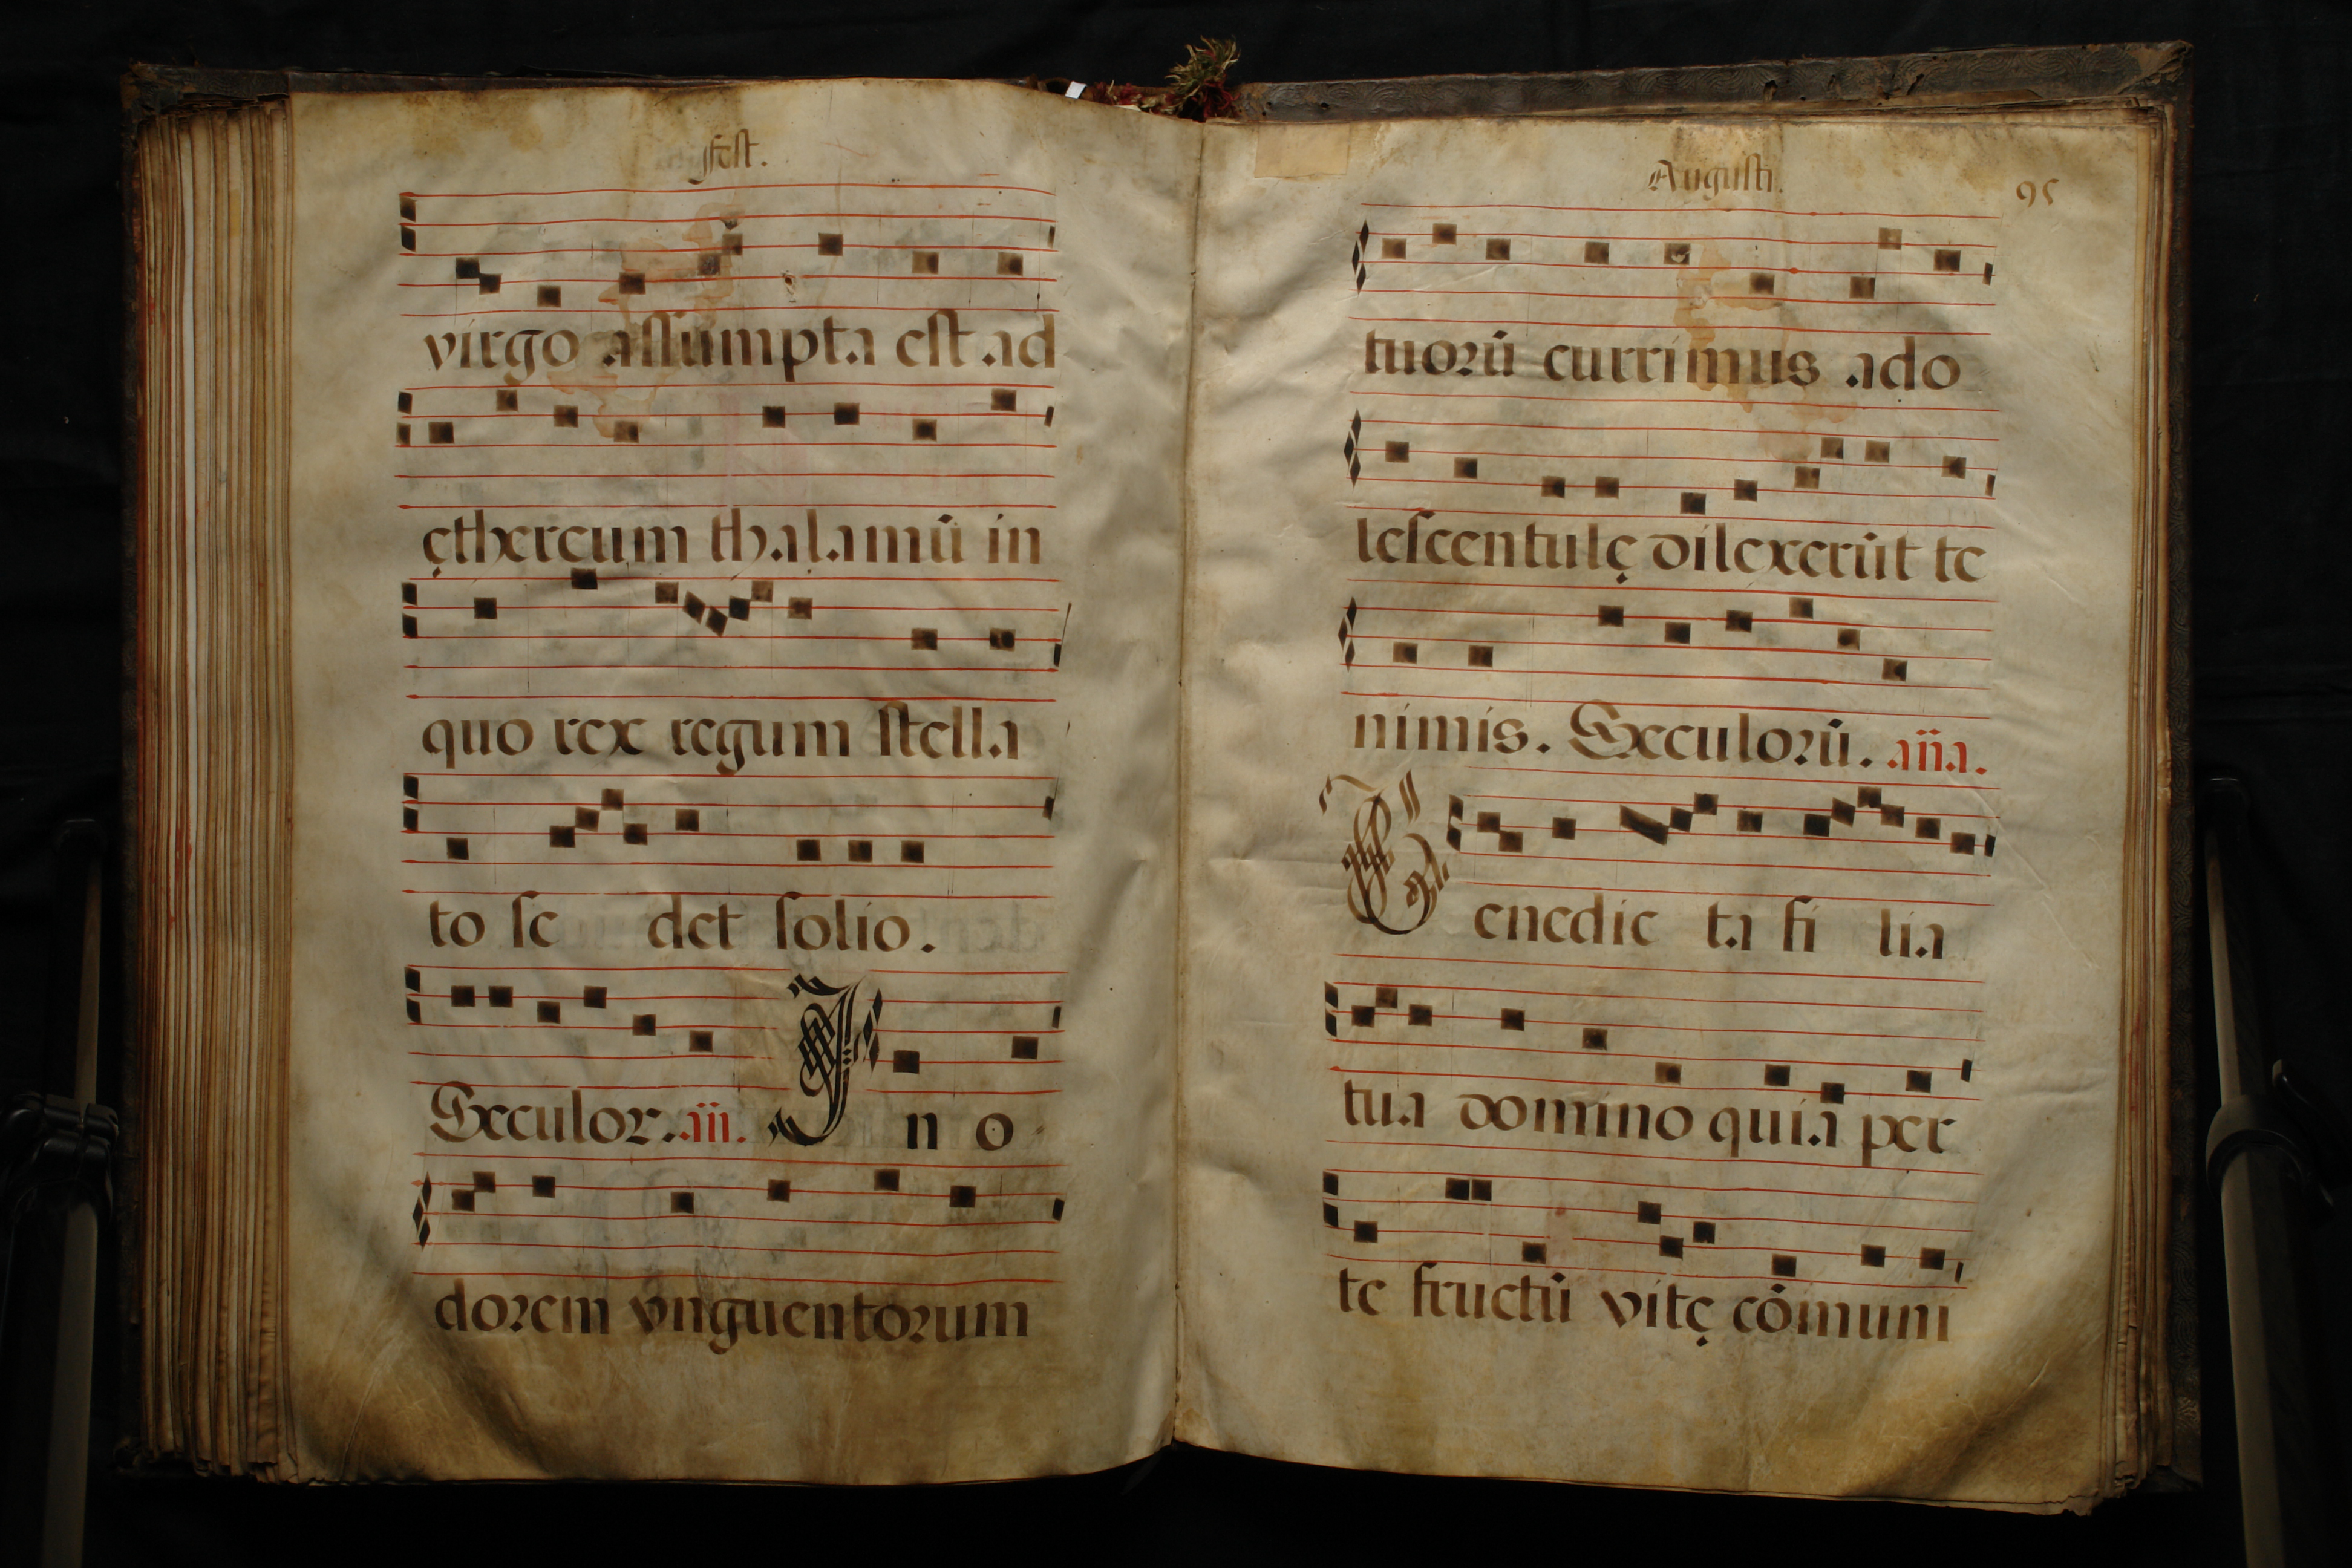 fest.
virgo assumpta est ad
ęthereum thalamū in
quo rex regum stella
to se det solio.
Seculor. añ. In o
dorem vnguentorum
Augusti. 95
tuorū currimus ado
lescentulę dilexerūt te
nimis. Seculorū. aña.
Benedic ta fi lia
tua domino quia per
te fructū vitę cōmuni